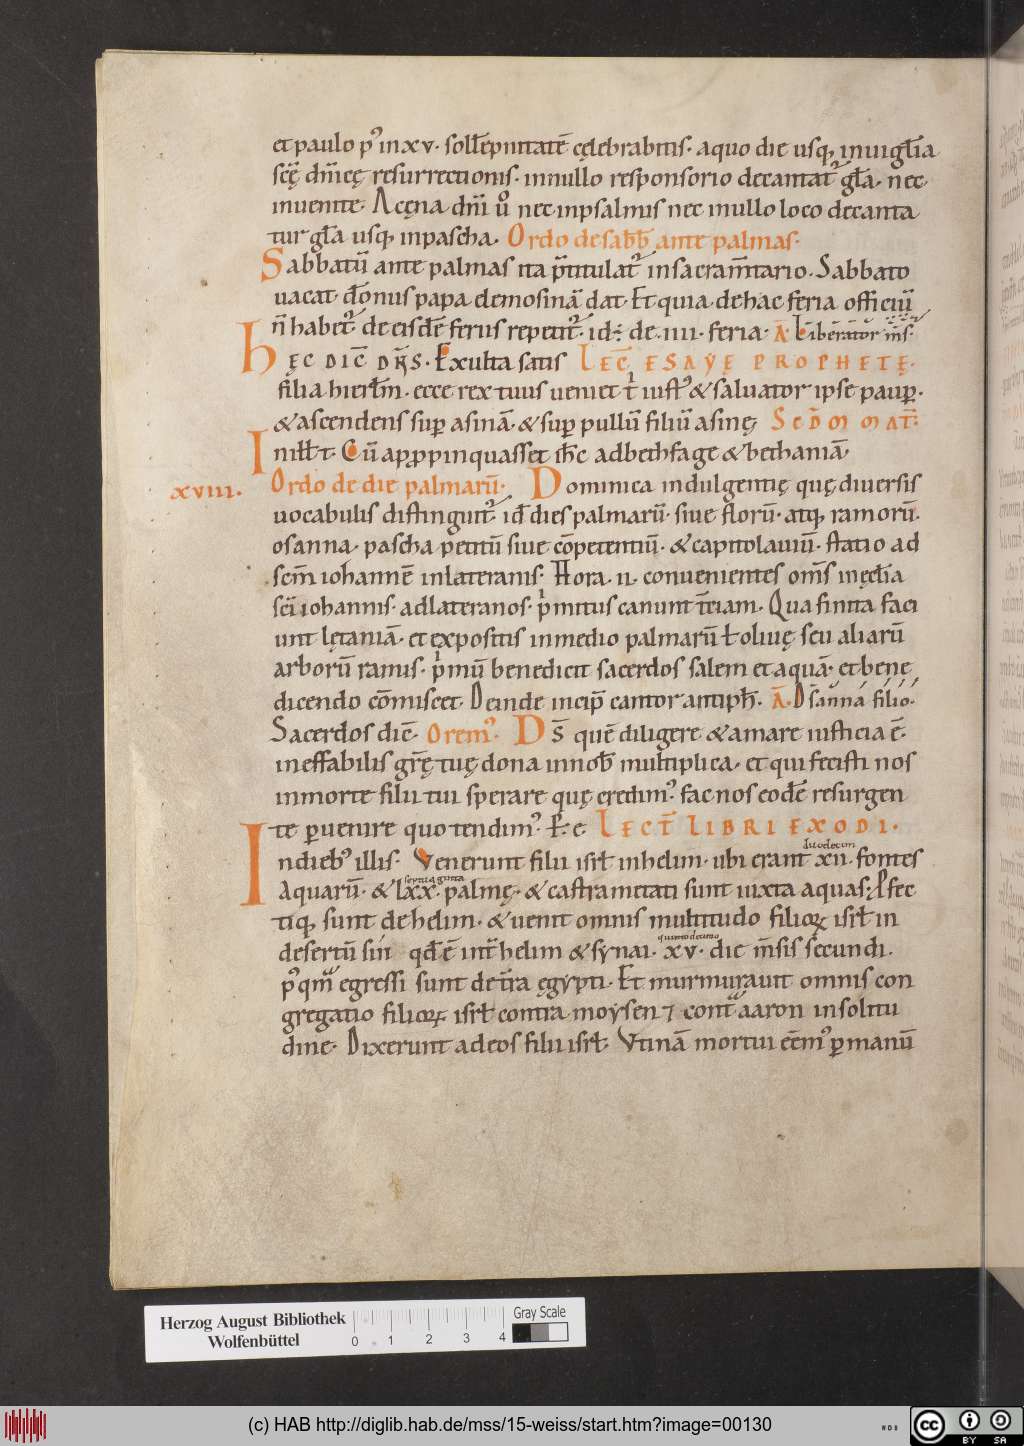 et paulo pꝰ in xv. sollēpnitatē cęlebrabitis. a quo die usq; in uigl̄ia
scę̄ dn̄icę resurrectionis. in nullo responsorio decantatᷣ gl̄a. nec
inuenite. A cęna dn̄i ů nec in psalmis nec in ullo loco decanta
tur gl̄a usq; in pascha. Ordo de sabb̄ ante palmas.
Sabbatū ante palmas ita p̄titulatᷣ in sacram̄tario. Sabbato
uacat. d̄onus papa elemosinā dat. Et quia de hac feria officiū
n̄ habetᷣ. de eisdē feriis repetitᷣ. id ÷ de .iiii. feria. A̅ Liberator m̄s.
HĘC DIC̄ DN̄S. Exulta satis LEC̄ ESAYĘ PROPHETĘ.
filia hierl̄m. ecce rex tuus ueniet t' iustꝰ & saluator ipse paup̱.
& ascendens sup̱ asinā. & sup̱ pullū filiū asinę. Scd̄m mat̄.
In ill̄ t̄. Cū appropinquasset ih̄c ad bethfage & bethaniā.
xviii. Ordo de die palmarū. Dominica indulgentię quę diuersis
uocabulis distinguitᷣ. id̄ dies palmarū. siue florū. atq; ramorū.
osanna. pascha petitū siue cōpetentiū. & capitolauiū. statio ad
scm̄ iohannē in lateranis. Hora .ii. conuenientes om̄s in ęcl̄ia
sc̄i iohannis. ad lateranos. p'mitus canunt t̄ciam. Qua finita faci
unt lętaniā. et expositis in medio palmarū ł oliuę seu aliarū
arborū ramis. p'mū benedicit sacerdos salem et aquā. et bene
dicendo cōmiscet. Deinde incip̄ cantor antiph̄. A̅. Osanna filio.
Sacerdos dic̄. Oremꝰ. DS̄ quē diligere & amare iusticia ē.
ineffabilis gr̄ę tuę dona in nob̄ multiplica. et qui fecisti nos
in morte filii tui sperare quę credimꝰ. fac nos eodē resurgen
te p̱uenire quo tendimꝰ. P̄. c. LECT̄ LIBRI EXODI.
duodecim
In diebꝰ illis. Venerunt filii isrł in helim. ubi erant xii. fontes
septuaginta
aquarū. & lxx. palmę. & castrametati sunt iuxta aquas. Pfec
tiq; sunt de helim. & uenit omnis multitudo filioꝝ isrł in
quinto decimo
desertū sin qd̄ ē int̄ helim & synai. xv. die m̄sis secundi.
pꝰqm̄ egressi sunt de t̄ra ęgypti. Et murmurauit omnis con
gregatio filioꝝ isrł contra moysen ⁊ cont̄ aaron in solitu
dine. Dixerunt ad eos filii isrł. Vtinā mortui eēmꝰ p̱ manū
Herzog August Bibliothek
Wolfenbüttel
0 1 2 3 4
Gray Scale
(c) HAB http://diglib.hab.de/mss/15-weiss/start.htm?image=00130
WDB
cc BY SA